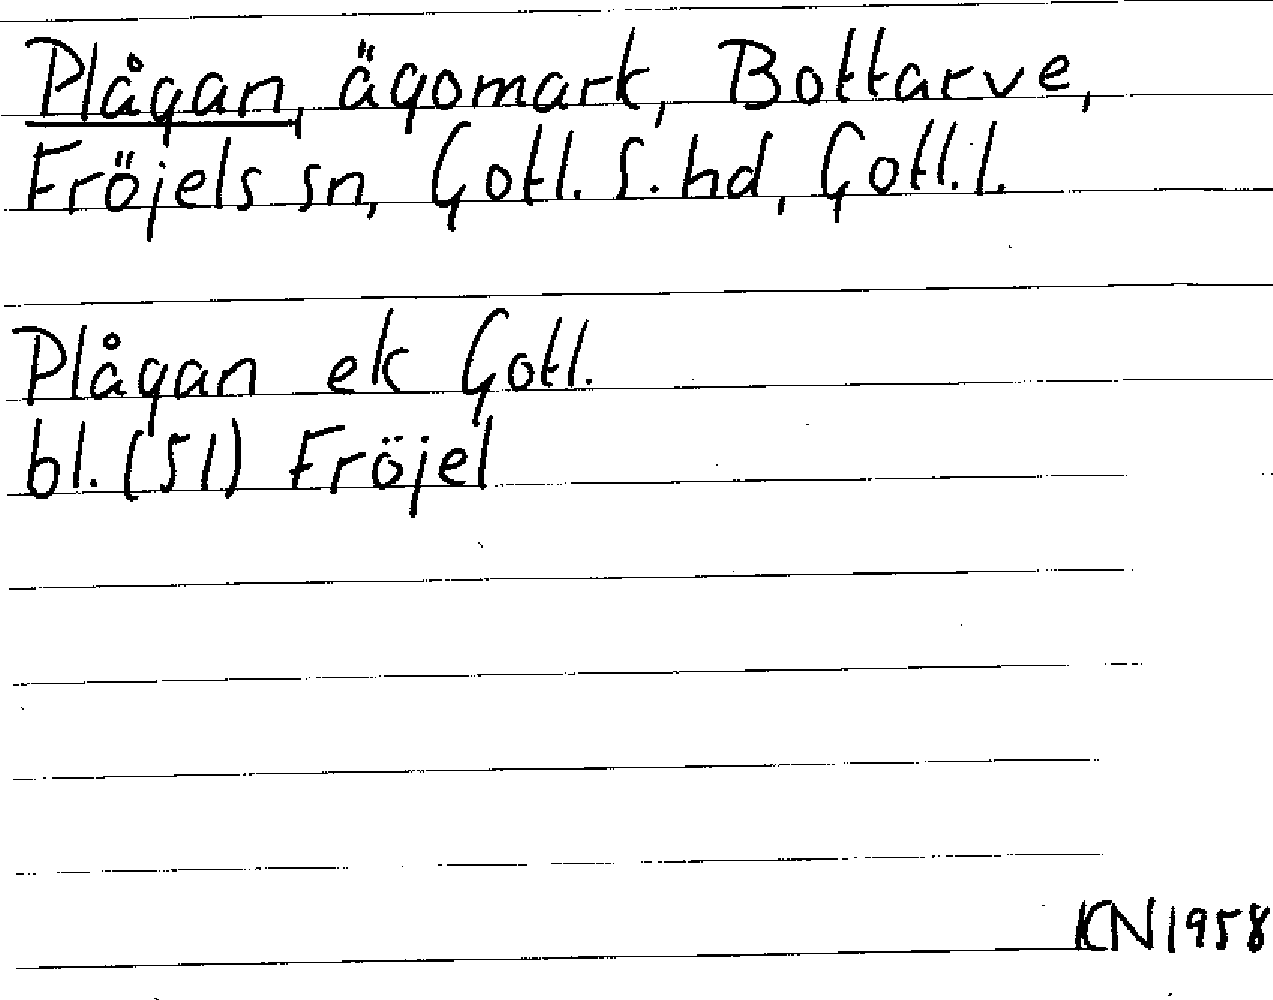 Plågan, ägomark, Bottarve,
Fröjels sn, Gotl. S. hd, Gotl. l.
Plågan ek Gotl.
bl. (51) Fröjel
KN 1958